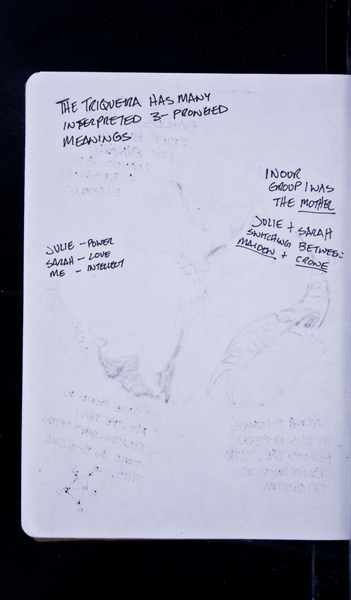 THE TRIQUERA HAS MANY
INTERPRETED 3-PRONGED
MEANINGS
IN OUR
GROUP I WAS
THE MOTHER
JULIE + SARAH
SWITCHING BETWEEN
MAIDEN + CRONE
JULIE - POWER
SARAH - LOVE
ME - INTELLECT